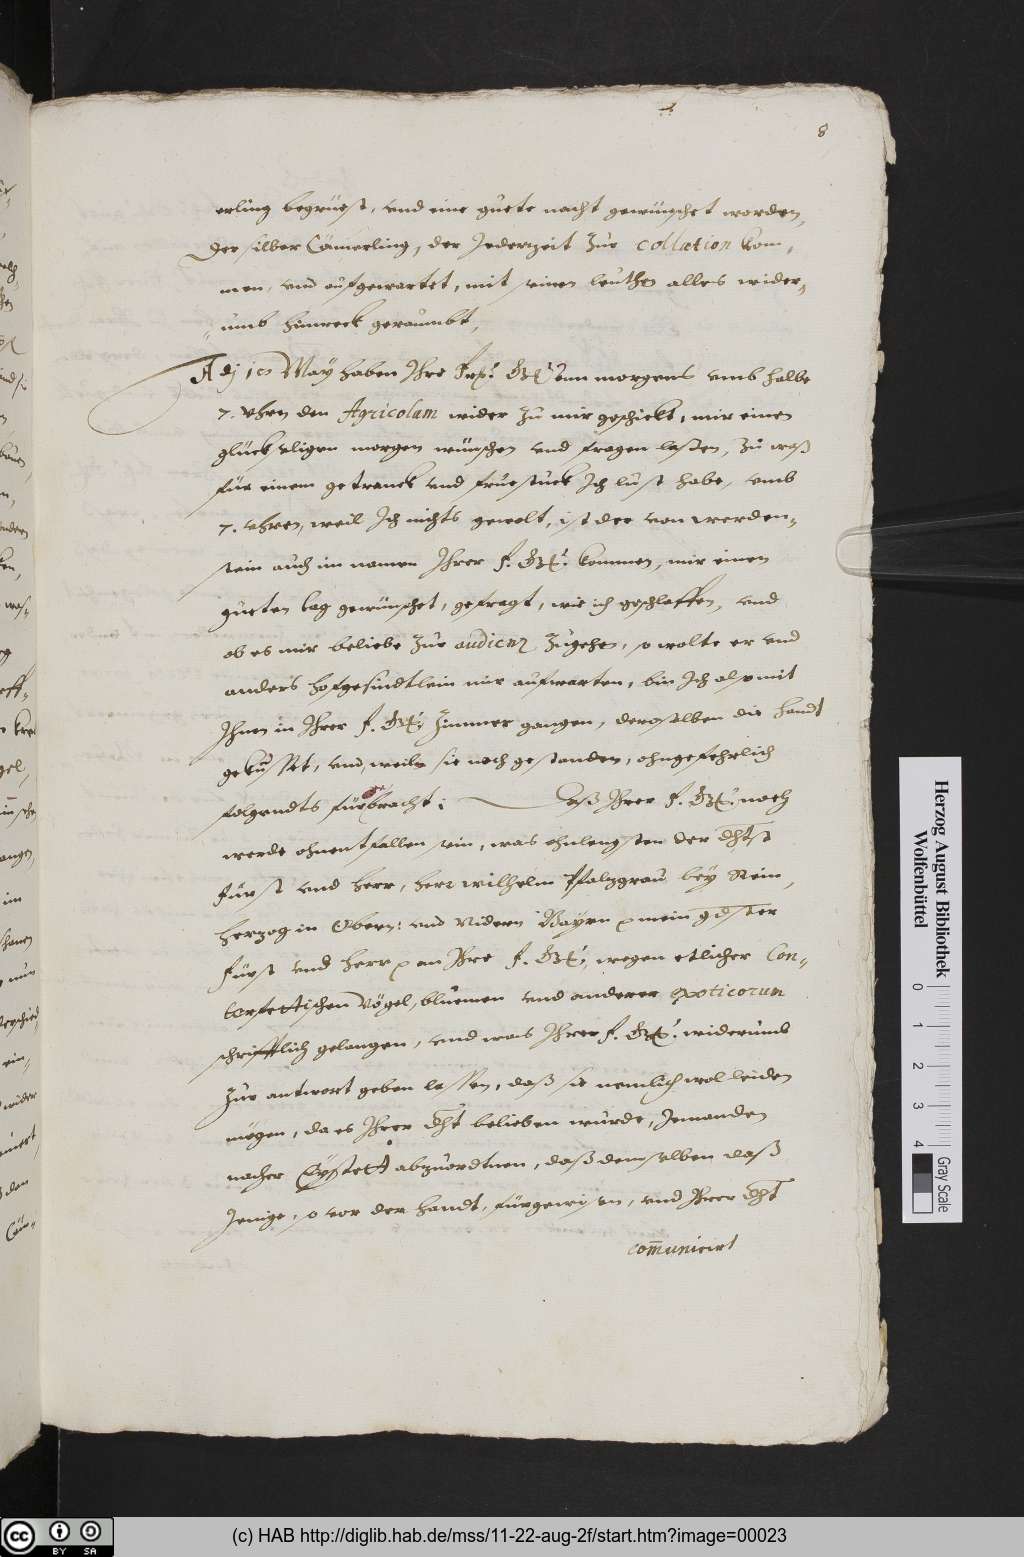 8
erling begrüest, und eine guete nacht gewünschet worden,
Der silber Cämerling, der Jederzeit zur collation kom-
men, und aufgewartet, mit seinen leuthen alles wider-
umb hinweck geraumbt,
Adj 10 May haben Ihre Frl: Gn: umb morgens umb halbe
7. Uhren den Agricolam wider zu mir geschickt, mir einen
glückseligen morgen wünschen und fragen lassen, zu waß
für einem getranck und fruestuck Ich lust habe, umb
7. uhren, weil Ich nichts gewolt, ist der von werden-
stein auch im namen Ihrer F. Gn: kommen, mir einen
gueten tag gewünschet, gefragt, wie ich geschlaffen, und
ob es mir beliebe zur audienz zugehen, so wolte er und
anders hofgesindtlein mir aufwarten, bin Ich also mit
Ihnen in Ihrer F. Gn: Zimmer gangen, deroselben die handt
geküsset, und, weiln sie noch gestanden, ohngefehrlich
folgendts fürbracht: Daß Ihrer F. Gn: noch
werde ohnentfallen sein, was ohnlengsten der dht
Fürst und herr, herr wilhelm Pfalzgraw bey Rein,
herzog in Obern: und Nidern Bayrn p mein gdster
Fürst und herr p an Ihre F. Gn: wegen etlicher Con-
torfettischen Vögel, bluemen und anderer exoticorum
schrifftlich gelangen, und was Ihrer F. Gn: widerumb
zur antwort geben lassen, daß sie nemlich wol leiden
mögen, da es Ihrer dht belieben würde, Jemanden
nacher Eystett abzuordtnen, daß demselben daß
Jenige, so vor der handt, fürgewisen, und Ihrer dht
com̄unicirt
Herzog August Bibliothek
Wolfenbüttel
0 1 2 3 4
Gray Scale
cc BY SA
(c) HAB http://diglib.hab.de/mss/11-22-aug-2f/start.htm?image=00023